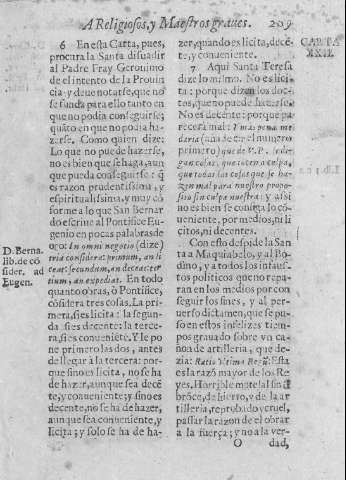 A Religiosos, y Maestros graues. 209
6 En esta Carta, pues,
procura la Santa disuadir
al Padre Fray Geronimo
de el intento de la Prouin
cia y deue notarse, que no
se funda para ello tanto en
que no podia conseguirse;
quãto en que no podia ha-
zerse. Como quien dize:
Lo que no puede hazerse,
no es bien que se haga, aun
que pueda conseguirse: q̃
es razon prudentissima, y
espiritualissima, y muy cõ
forme a lo que San Bernar
do escriue al Pontifice Eu-
genio en pocas palabras de
oro: In omni negotio (dize) tria
considerat: primum, an li
ceat: secundum, an deceat: ter
tium, an expediat. En todo
quanto obras, ò Pontifice,
cõsidera tres cosas. La pri-
mera, si es licita: la segun-
da si es decente: la terce-
ra, si es conueniẽte. Y le po
ne primero las dos, antes
de llegar à la tercera: por-
que sino es licita, no se ha
de hazer, aunque sea decẽ
te, y conueniente: y sino es
decente, no se ha de hazer,
aunque sea conueniente, y
licita; y solo se ha de ha-
D. Berna.
lib. de cõ
sider. ad
Eugen.
zer, quando es licita, decẽ-
te, y conueniente.
7 Aqui Santa Teresa
dize lo mismo. No es lici-
ta: porque dizen los doc-
tos, que no puede hazerse.
No es decente: porque pa-
recerà mal: Y mas pena me
daria (
numero
primero) que de V. P.
gan cosas, que
que todas las cosas que se ha-
zen mal para nuestro propo-
sito sin culpa nuestra: y assi
no es bien se consiga lo cõ-
ueniente, por medios, ni li
citos, ni decentes.
Con esto despide la San
ta a Maquiabelo, y al Bo-
dino, y a todos los infaus-
tos politicos que no repa-
ran en los medios por con
seguir los fines, y al per-
uerso dictamen, que se pu-
so en estos infelizes tiem-
pos grauado sobre vn ca-
ñon de artilleria, que de-
zia: Ratio Vltima Regũ: Esta
es la razõ mayor de los Re-
yes. Horrible mote al sin de
brõce, de hierro, y de la ar
tilleria, reprobado y cruel,
passar la razon de el obrar
a la fuerça; y no a la ver-
CARTA
XXII.
O dad,